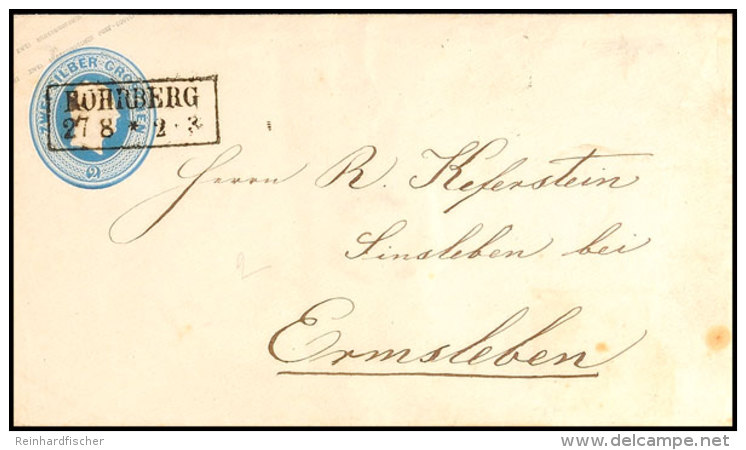 ZWEI SILBER-GROSCHEN
ROHRBERG
27 8 * 2 - 3
2
Herrn R. Keferstein
Sinsleben bei
2
Ermsleben
Reinhardfischer
delcampe.net